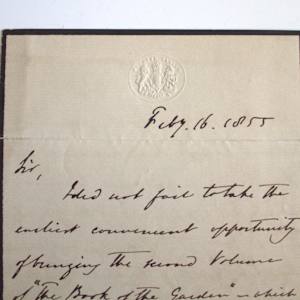 Feby. 16. 1855
Sir,
I did not fail to take the
earliest convenient opportunity
of bringing the second Volume
of "The Book of the Garden" - which